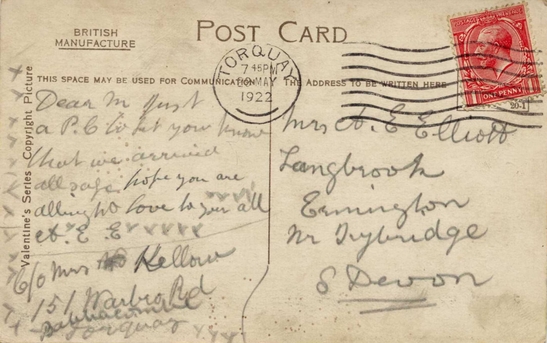 BRITISH
MANUFACTURE
POST CARD
THIS SPACE MAY BE USED FOR COMMUNICATION
THE ADDRESS TO BE WRITTEN HERE
TORQUAY
7 45PM
MAY
1922
POSTAGE
ONE PENNY
Valentine's Series - Copyright Picture
Dear M Just
a P.C to let you know
that we arrived
all safe hope you are
allright love to you all
A. E. E
C/o Mrs Kellow
151 Warbro Rd
Babbacombe
Torquay
Mrs A. E Elliott
Langbrook
Ermington
Nr Ivybridge
S Devon